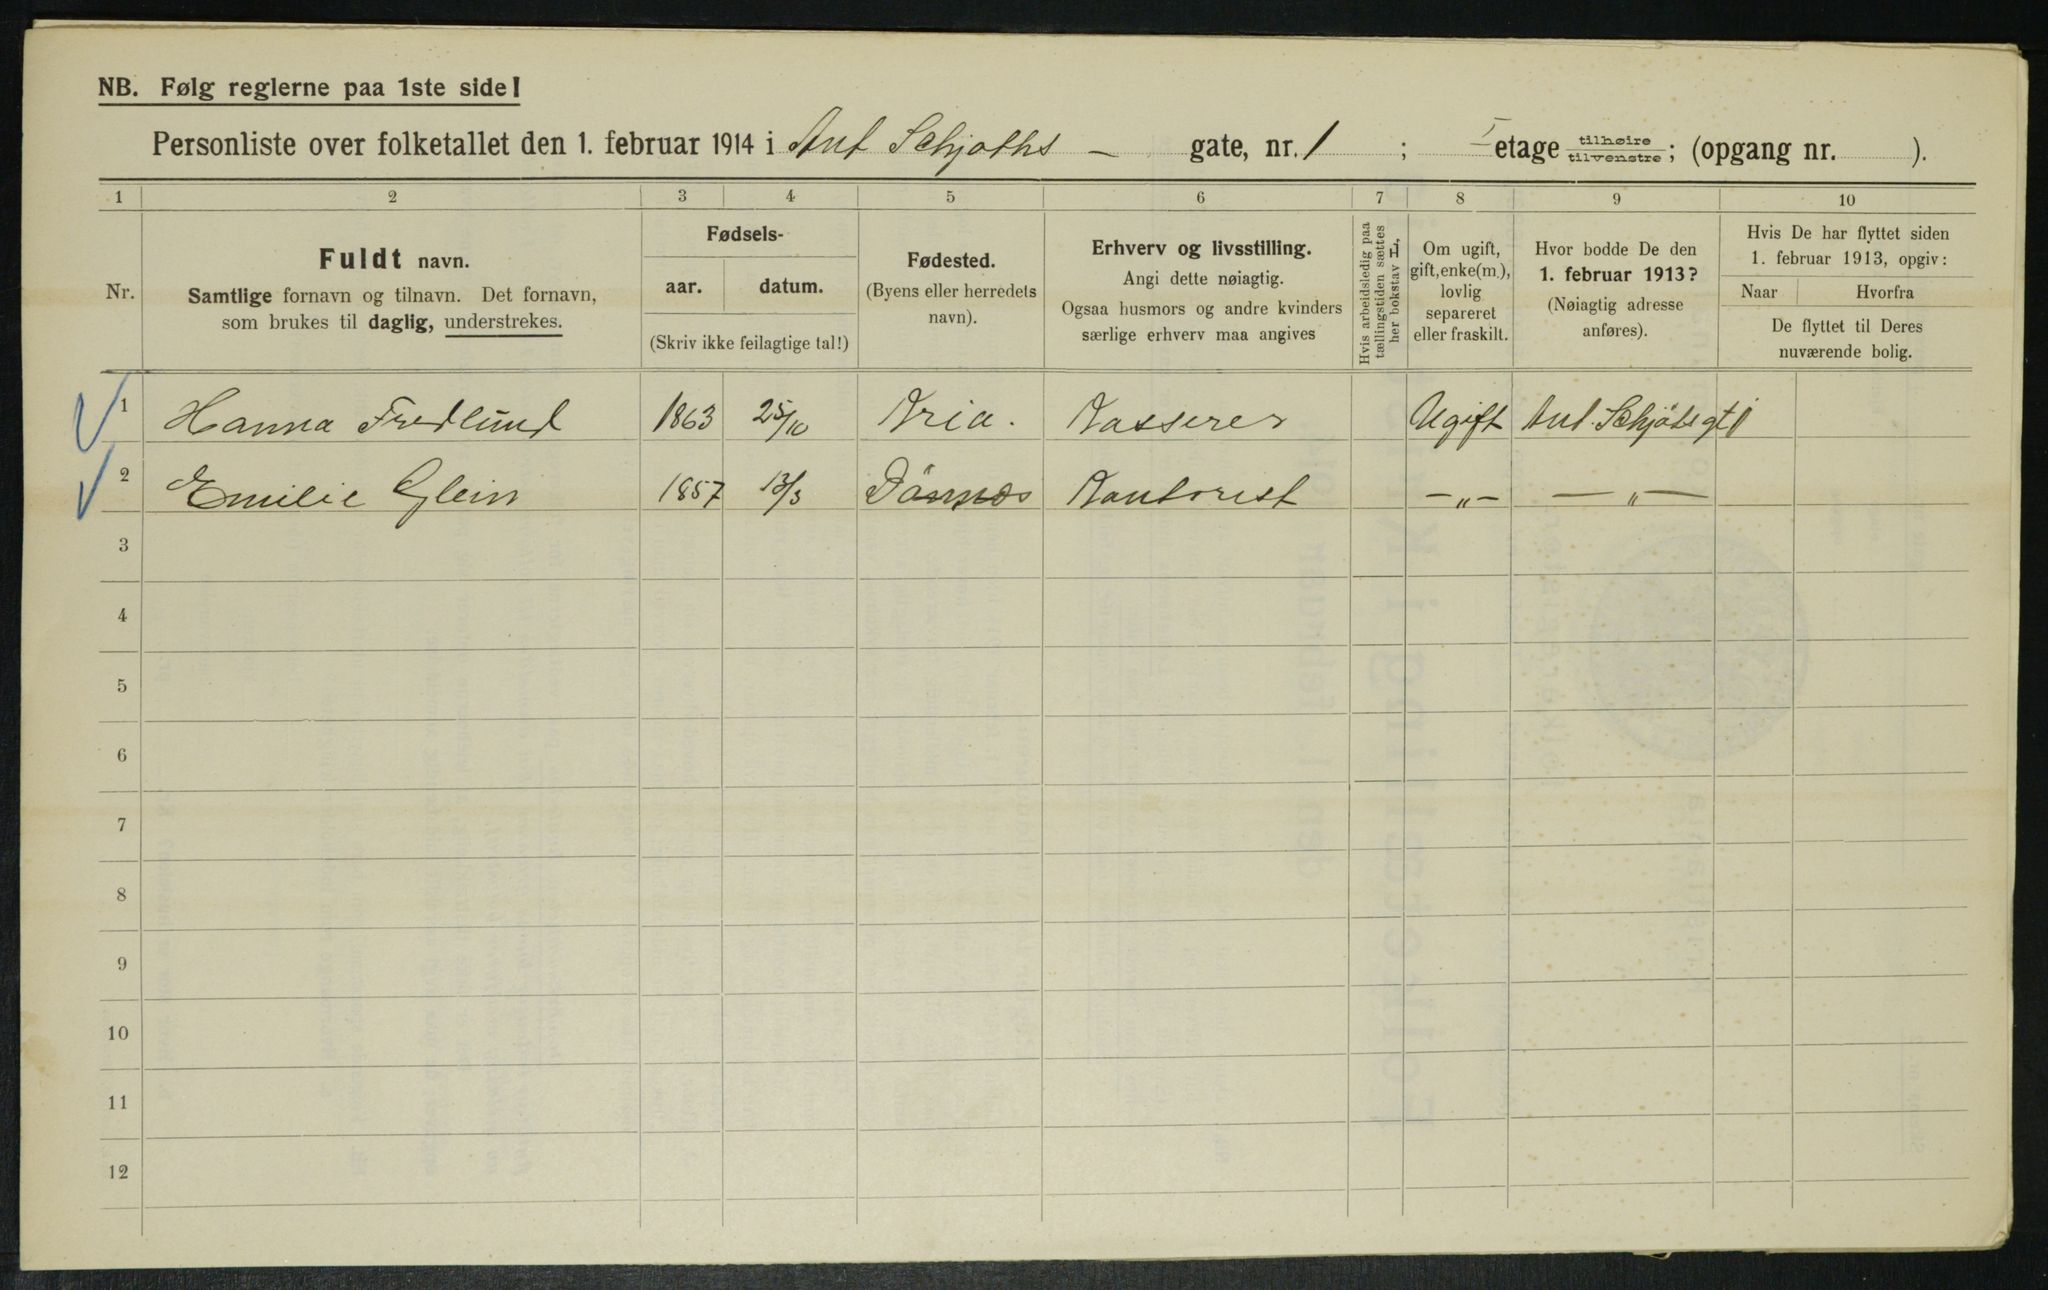 NB. Følg reglerne paa 1ste side!
Personliste over folketallet den 1. februar 1914 i Ant Schjøths – gate, nr. 1 ; I etage tilhøire tilvenstre; (opgang nr. ).
1 2 3 4 5 6 7 8 9 10
Nr.
Fuldt navn.
Samtlige fornavn og tilnavn. Det fornavn,
som brukes til daglig, understrekes.
Fødsels-
aar. datum.
(Skriv ikke feilagtige tal!)
Fødested.
(Byens eller herredets
navn).
Erhverv og livsstilling.
Angi dette nøiagtig.
Ogsaa husmors og andre kvinders
særlige erhverv maa angives
Hvis arbeidsledig paa
tællingstiden sættes
her bokstav L.
Om ugift,
gift, enke(m.),
lovlig
separeret
eller fraskilt.
Hvor bodde De den
1. februar 1913?
(Nøiagtig adresse
anføres).
Hvis De har flyttet siden
1. februar 1913, opgiv:
Naar Hvorfra
De flyttet til Deres
nuværende bolig.
1 Hanna Fredlund 1863 25/10 Kria. Kasserer Ugift Ant. Schjötsgt 1
2 Emilie Glein 1857 13/3 Dönnæs Kontorist –„– –„–
3
4
5
6
7
8
9
10
11
12